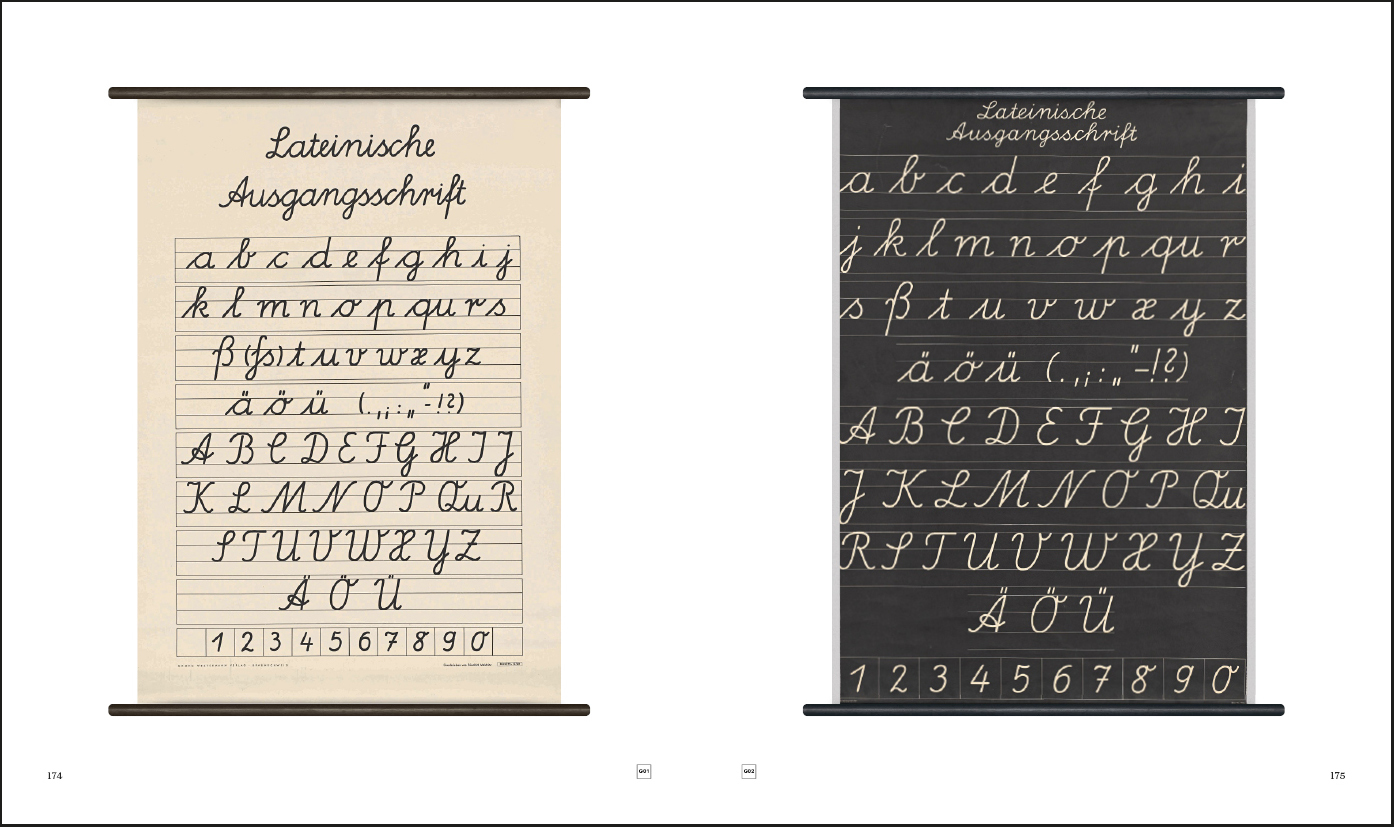 Lateinische
Ausgangsschrift
a b c d e f g h i j
k l m n o p qu r s
ß (ſs) t u v w x y z
ä ö ü (. , ; : „ “ - ! ? )
A B C D E F G H I J
K L M N O P Qu R
S T U V W X Y Z
Ä Ö Ü
1 2 3 4 5 6 7 8 9 0
174
G01
Lateinische
Ausgangsschrift
a b c d e f g h i
j k l m n o p qu r
s ß t u v w x y z
ä ö ü (. , ; : „ “ – ! ? )
A B C D E F G H I
J K L M N O P Qu
R S T U V W X Y Z
Ä Ö Ü
1 2 3 4 5 6 7 8 9 0
G02
175